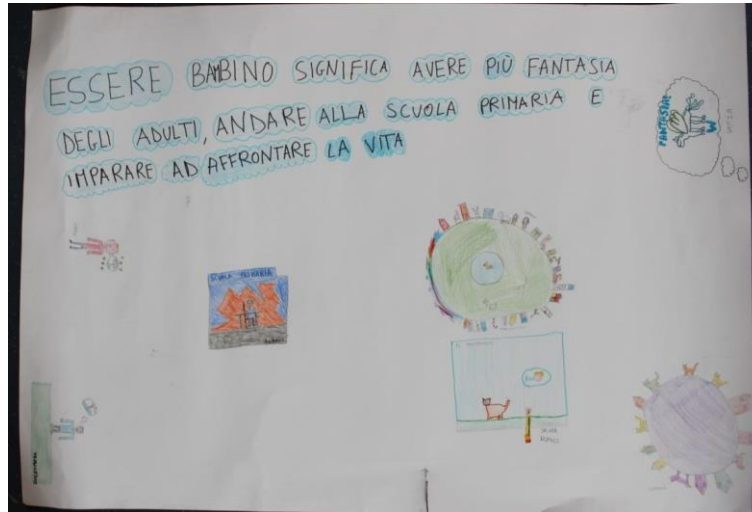 ESSERE BAMBINO SIGNIFICA AVERE PIÙ FANTASIA
DEGLI ADULTI, ANDARE ALLA SCUOLA PRIMARIA E
IMPARARE AD AFFRONTARE LA VITA
FANTASIA
W
SCUOLA PRIMARIA